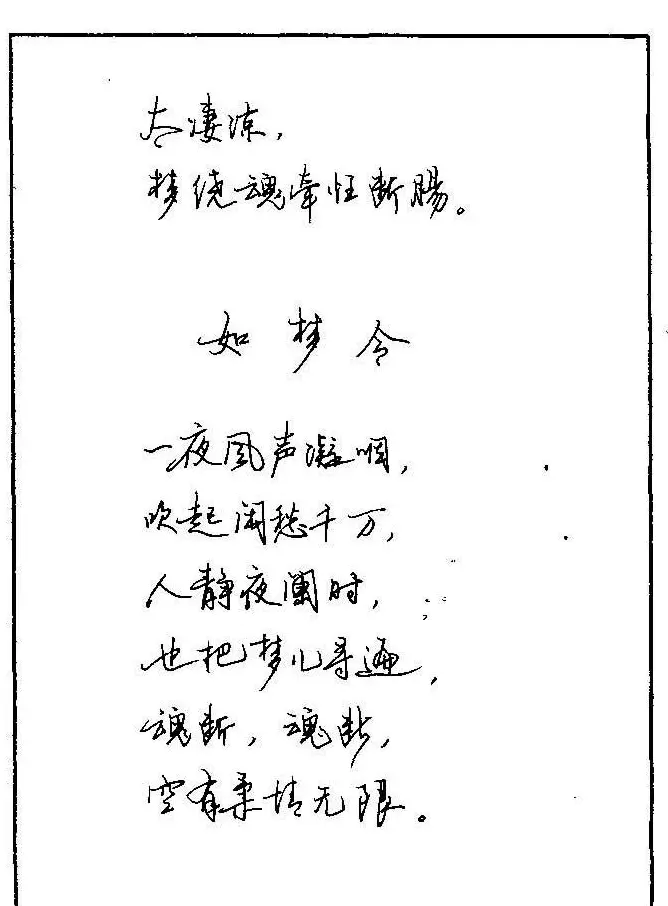 太凄凉，
梦绕魂牵枉断腸。
如梦令
一夜风声凝咽，
吹起闲愁千万，
人静夜阑时，
也把梦儿寻遍，
魂断，魂断，
空有柔情无限。